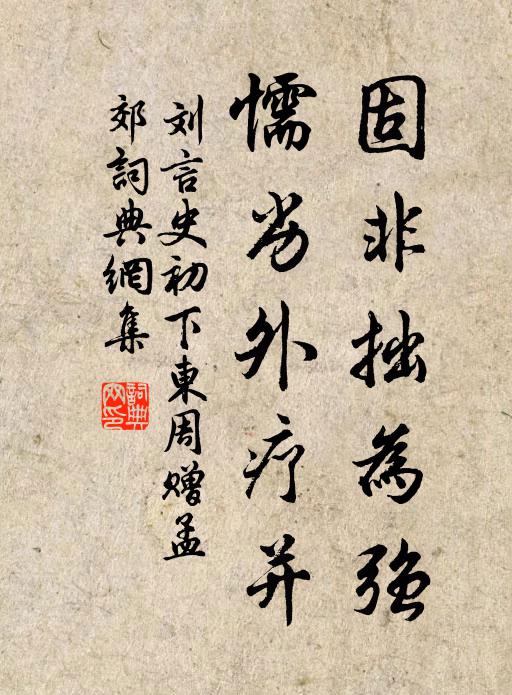 固非拙為強
懦劣外疗并
刘言史初下東周赠孟
郊詞典網集
詞典
网印